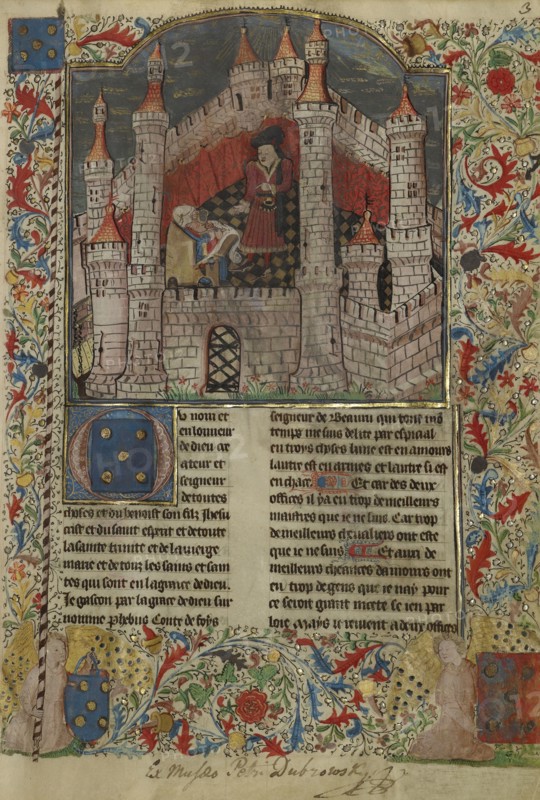 3
u nom et
en lonneur
de dieu cre
ateur et
seigneur
de toutes
choses et du benoist son filz Jhesu
crist et du saint esprit et de toute
la sainte trinite et de la vierge
marie et de touz les sains et sain
tes qui sont en la grace de dieu.
Je gaston par la grace de dieu sur
nomme phebus Conte de foys
seigneur de Bearn qui tout mon
temps me suis delite par espicial
en troys choses lune est en amours
lautre est en armes et lautre si est
en chace Et car des deux
offices il ya eu trop de meilleurs
maistres que ie ne suis Car trop
de meilleurs chevaliers ont este
que ie ne suis Et aux de
meilleurs cheances damours ont
eu trop de gens que ie nay pour
ce seroit grant nicete se ien par
loie Mays ie remet a deux offices
Ex Musæo Petri Dubrowsky